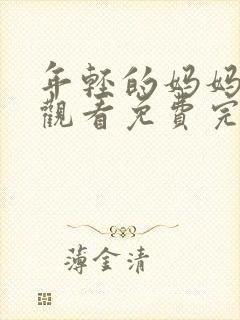 年轻的妈妈
觀看免費完
薄金清